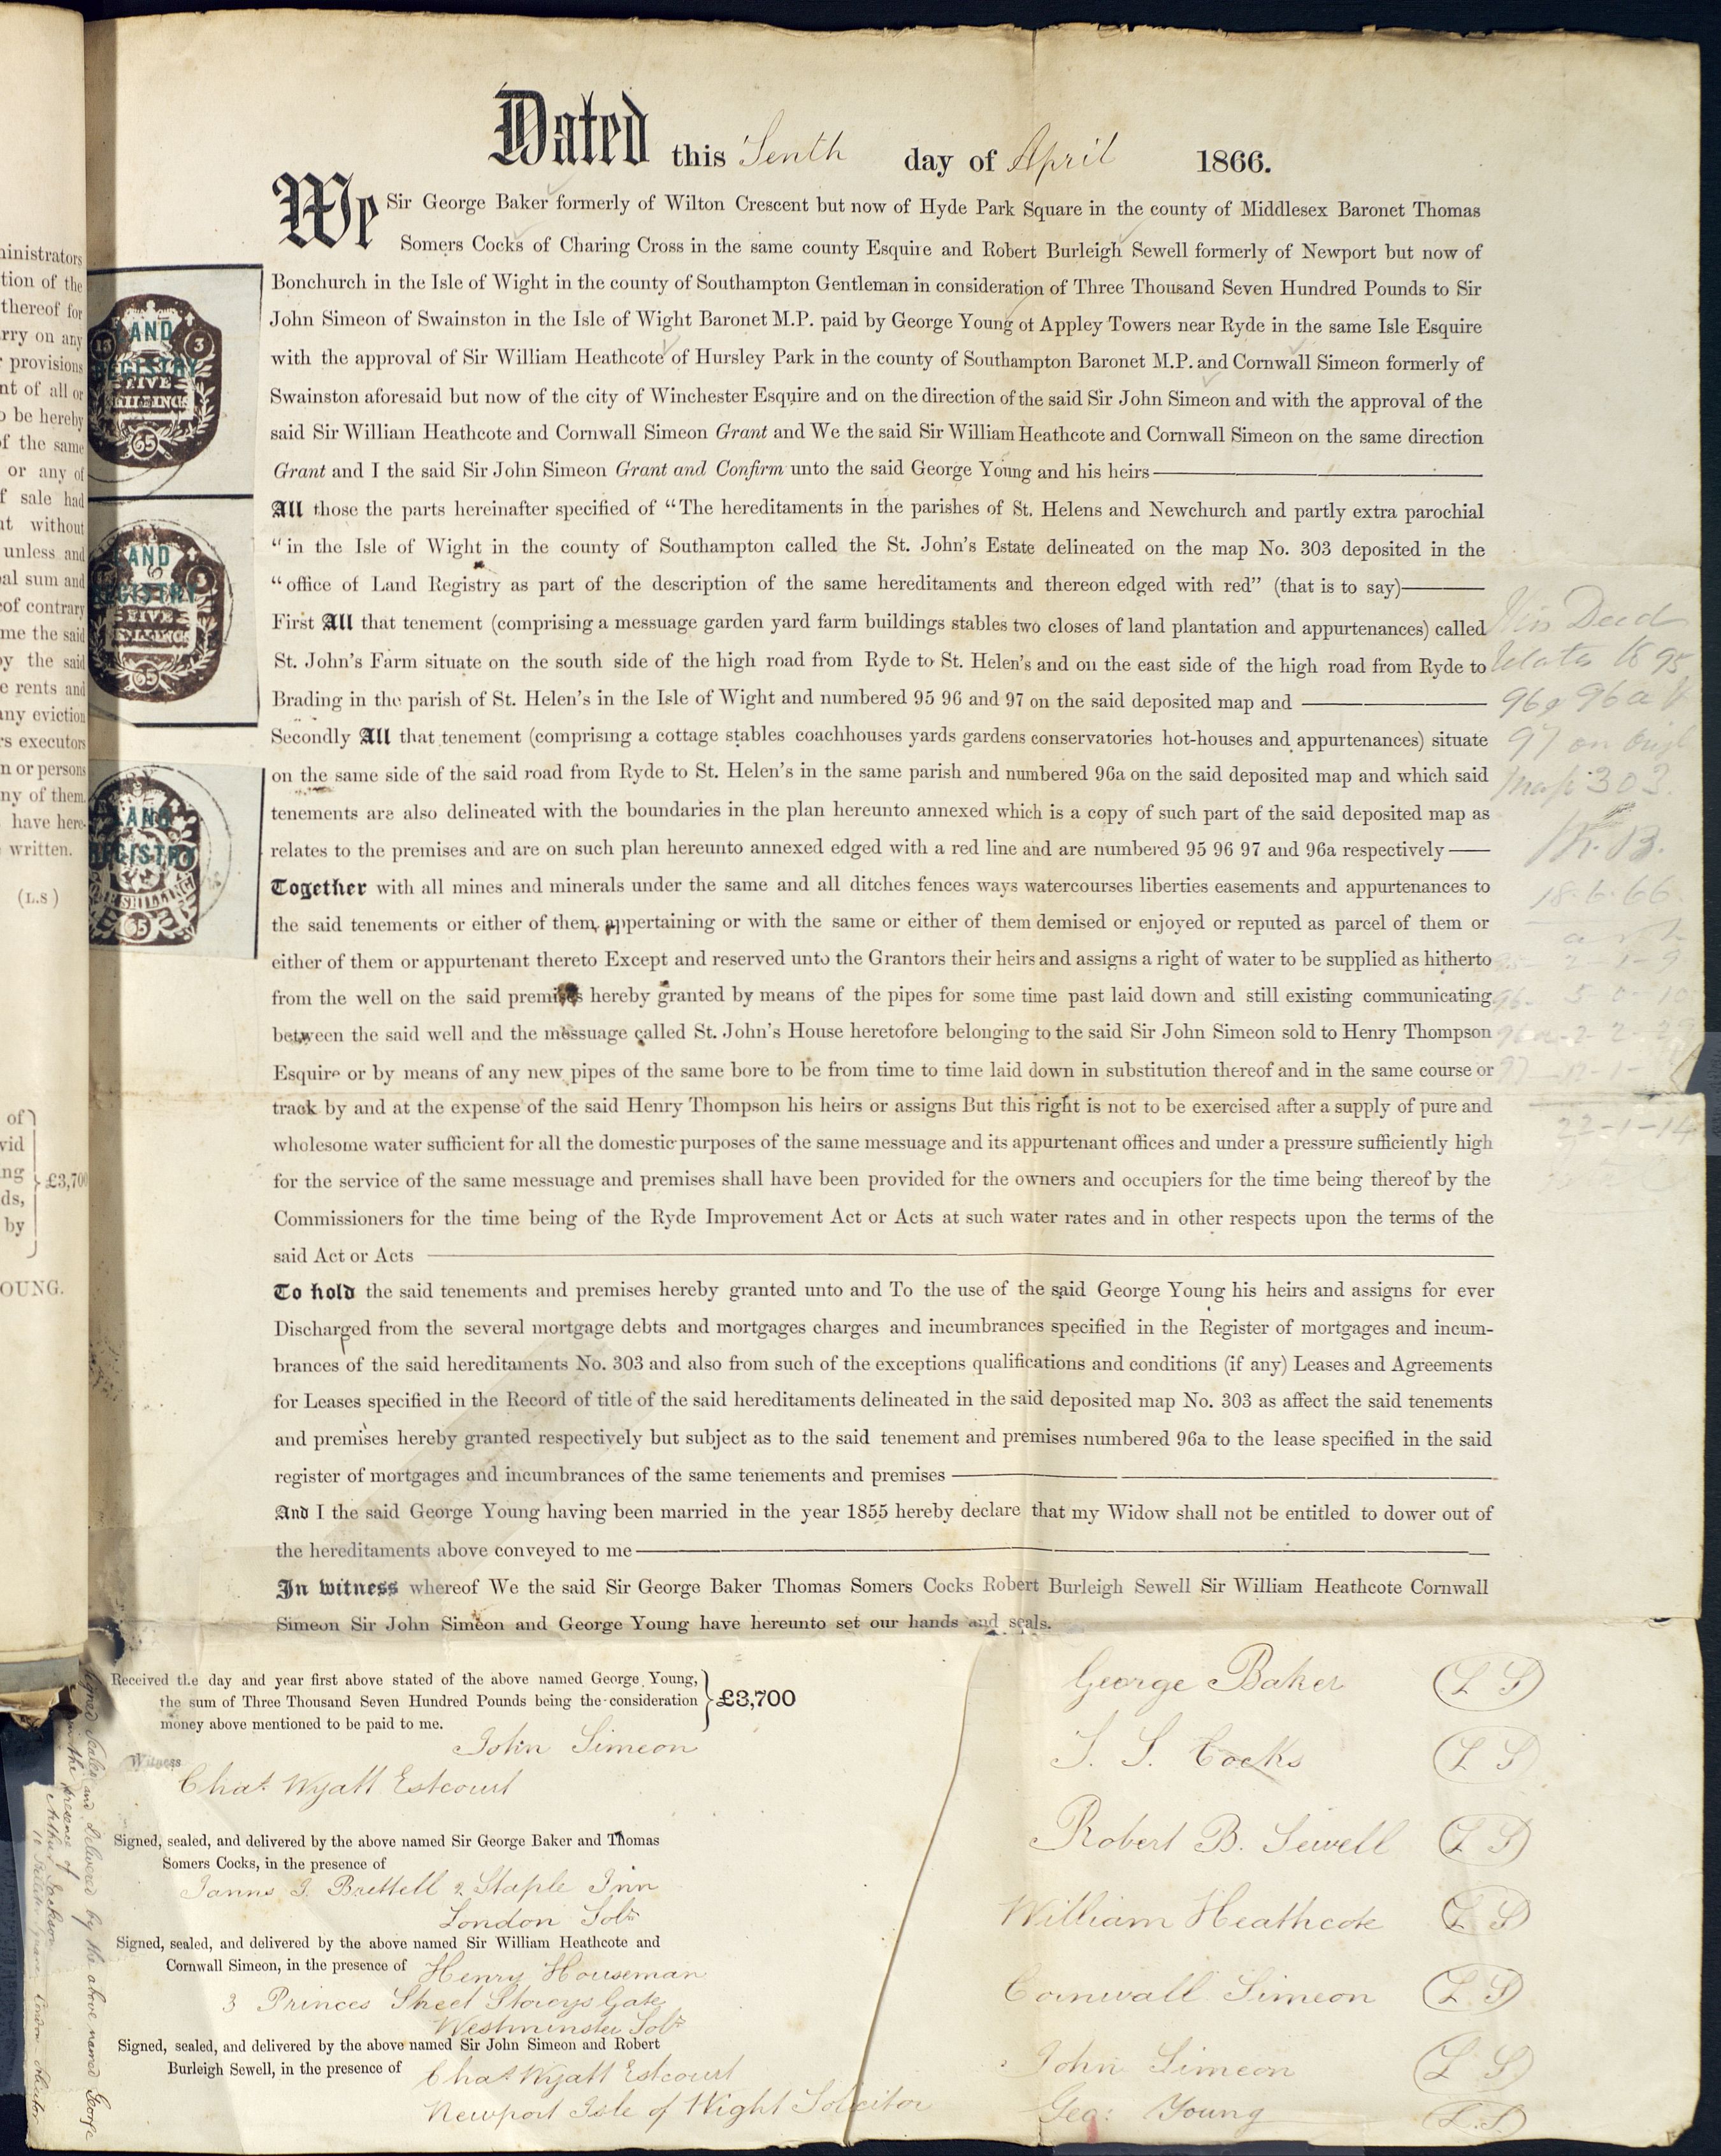 ministrators
tion of the
thereof for
rry on any
provisions
nt of all or
o be hereby
of the same
or any of
f sale had
nt without
unless and
al sum and
eof contrary
me the said
by the said
e rents and
any eviction
rs executors
n or persons
ny of them
have here-
written.
(L.S)
of
vid
ng
£3,700
ds,
by
OUNG.
LAND
REGISTRY
13 3
FIVE
SHILLINGS
65
LAND
REGISTRY
3
FIVE
SHILLINGS
65
LAND
REGISTRY
SHILLING
65
Dated this Tenth day of April 1866.
We Sir George Baker formerly of Wilton Crescent but now of Hyde Park Square in the county of Middlesex Baronet Thomas
Somers Cocks of Charing Cross in the same county Esquire and Robert Burleigh Sewell formerly of Newport but now of
Bonchurch in the Isle of Wight in the county of Southampton Gentleman in consideration of Three Thousand Seven Hundred Pounds to Sir
John Simeon of Swainston in the Isle of Wight Baronet M.P. paid by George Young of Appley Towers near Ryde in the same Isle Esquire
with the approval of Sir William Heathcote of Hursley Park in the county of Southampton Baronet M.P. and Cornwall Simeon formerly of
Swainston aforesaid but now of the city of Winchester Esquire and on the direction of the said Sir John Simeon and with the approval of the
said Sir William Heathcote and Cornwall Simeon Grant and We the said Sir William Heathcote and Cornwall Simeon on the same direction
Grant and I the said Sir John Simeon Grant and Confirm unto the said George Young and his heirs
All those the parts hereinafter specified of "The hereditaments in the parishes of St. Helens and Newchurch and partly extra parochial
"in the Isle of Wight in the county of Southampton called the St. John's Estate delineated on the map No. 303 deposited in the
"office of Land Registry as part of the description of the same hereditaments and thereon edged with red" (that is to say)
First All that tenement (comprising a messuage garden yard farm buildings stables two closes of land plantation and appurtenances) called
St. John's Farm situate on the south side of the high road from Ryde to St. Helen's and on the east side of the high road from Ryde to
Brading in the parish of St. Helen's in the Isle of Wight and numbered 95 96 and 97 on the said deposited map and
Secondly All that tenement (comprising a cottage stables coachhouses yards gardens conservatories hot-houses and appurtenances) situate
on the same side of the said road from Ryde to St. Helen's in the same parish and numbered 96a on the said deposited map and which said
tenements are also delineated with the boundaries in the plan hereunto annexed which is a copy of such part of the said deposited map as
relates to the premises and are on such plan hereunto annexed edged with a red line and are numbered 95 96 97 and 96a respectively
Together with all mines and minerals under the same and all ditches fences ways watercourses liberties easements and appurtenances to
the said tenements or either of them appertaining or with the same or either of them demised or enjoyed or reputed as parcel of them or
either of them or appurtenant thereto Except and reserved unto the Grantors their heirs and assigns a right of water to be supplied as hitherto
from the well on the said premises hereby granted by means of the pipes for some time past laid down and still existing communicating
between the said well and the messuage called St. John's House heretofore belonging to the said Sir John Simeon sold to Henry Thompson
Esquire or by means of any new pipes of the same bore to be from time to time laid down in substitution thereof and in the same course or
track by and at the expense of the said Henry Thompson his heirs or assigns But this right is not to be exercised after a supply of pure and
wholesome water sufficient for all the domestic purposes of the same messuage and its appurtenant offices and under a pressure sufficiently high
for the service of the same messuage and premises shall have been provided for the owners and occupiers for the time being thereof by the
Commissioners for the time being of the Ryde Improvement Act or Acts at such water rates and in other respects upon the terms of the
said Act or Acts
To hold the said tenements and premises hereby granted unto and To the use of the said George Young his heirs and assigns for ever
Discharged from the several mortgage debts and mortgages charges and incumbrances specified in the Register of mortgages and incum-
brances of the said hereditaments No. 303 and also from such of the exceptions qualifications and conditions (if any) Leases and Agreements
for Leases specified in the Record of title of the said hereditaments delineated in the said deposited map No. 303 as affect the said tenements
and premises hereby granted respectively but subject as to the said tenement and premises numbered 96a to the lease specified in the said
register of mortgages and incumbrances of the same tenements and premises
And I the said George Young having been married in the year 1855 hereby declare that my Widow shall not be entitled to dower out of
the hereditaments above conveyed to me
In witness whereof We the said Sir George Baker Thomas Somers Cocks Robert Burleigh Sewell Sir William Heathcote Cornwall
Simeon Sir John Simeon and George Young have hereunto set our hands and seals.
This Deed
relates to 95
96, 96a &
97 on
map 303.
18.6.66
2-1-9
5-0-10
22-1-14
Received the day and year first above stated of the above named George Young,
the sum of Three Thousand Seven Hundred Pounds being the consideration £3,700
money above mentioned to be paid to me.
John Simeon
Witness
Chas. Wyatt Estcourt
Signed, sealed, and delivered by the above named Sir George Baker and Thomas
Somers Cocks, in the presence of
J. Brettell 2 Staple Inn
London Solr
Signed, sealed, and delivered by the above named Sir William Heathcote and
Cornwall Simeon, in the presence of Henry Houseman
3 Princes Street Storeys Gate
Westminster Solr
Signed, sealed, and delivered by the above named Sir John Simeon and Robert
Burleigh Sewell, in the presence of Chas. Wyatt Estcourt
Newport Isle of Wight Solicitor
George Baker L S
T. S. Cocks L S
Robert B. Sewell L S
William Heathcote L S
Cornwall Simeon L S
John Simeon L S
Geo: Young L.S.
Signed Sealed and Delivered by the above named George
in the presence of
Arthur Jackson
London Solicitor